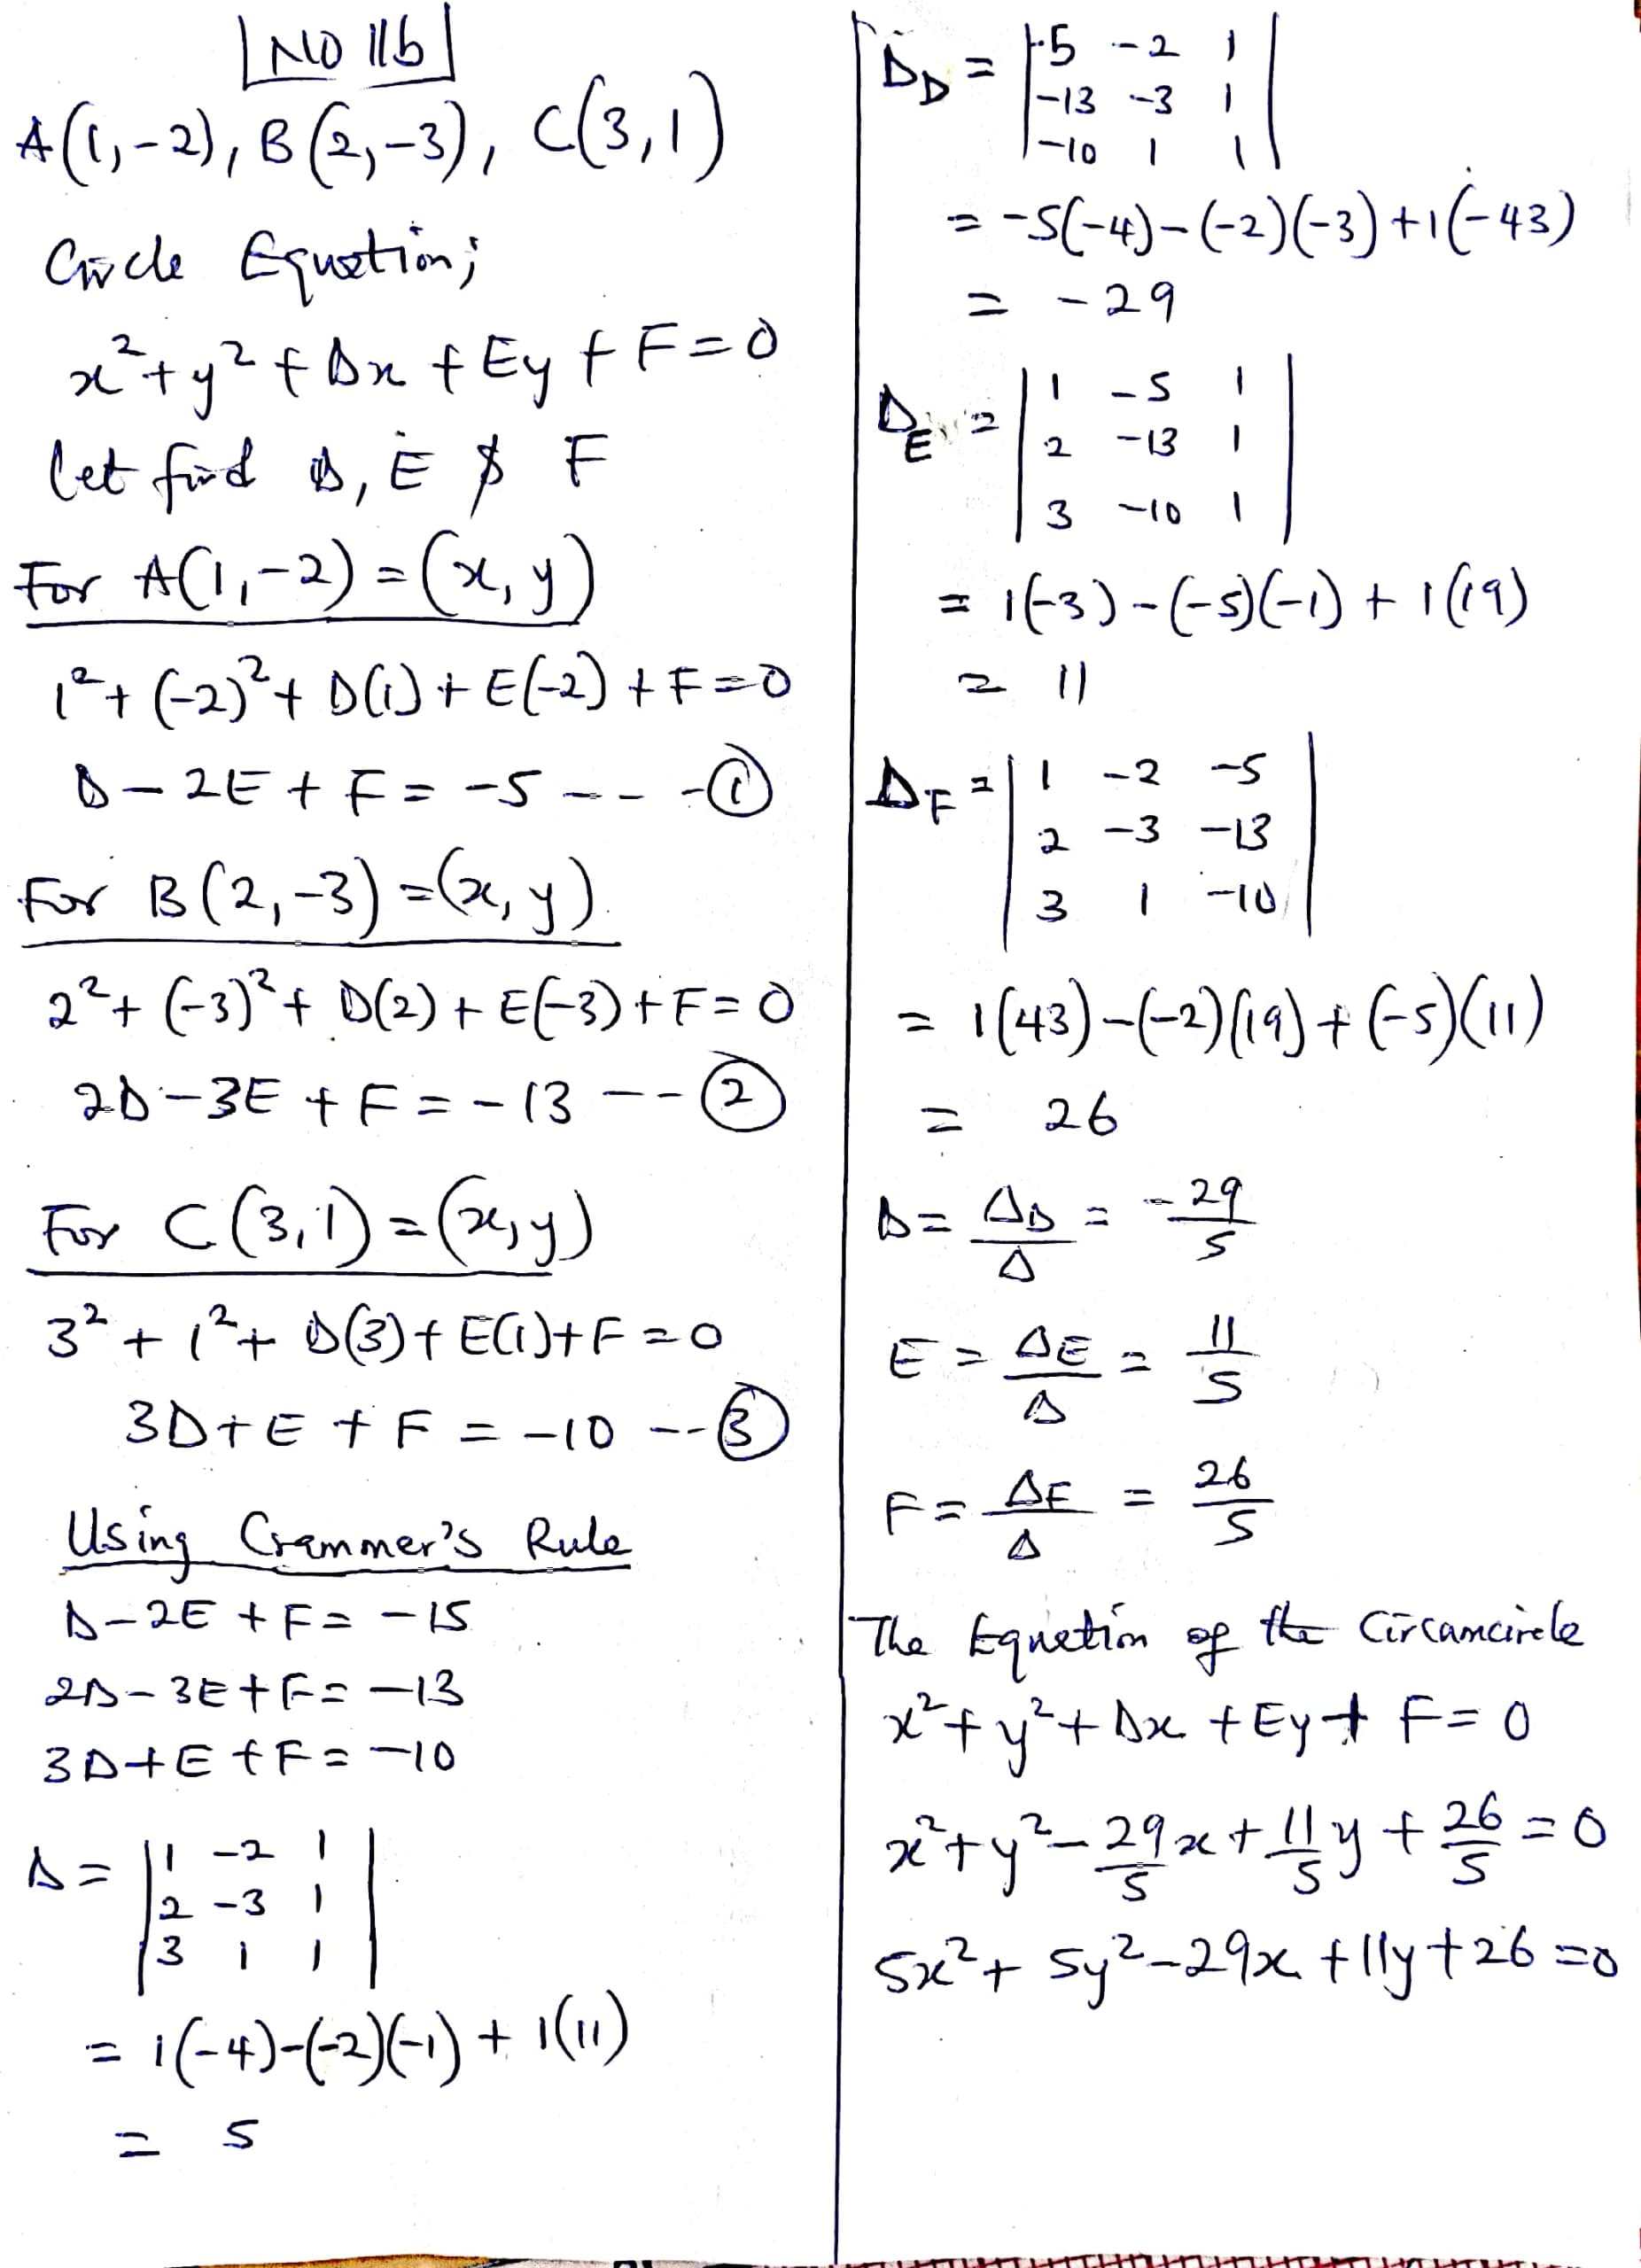 NO 11b
A(1,-2), B(2,-3), C(3,1)
Circle Equation;
x²+y²+Dx+Ey+F=0
let find D, E & F
For A(1,-2)=(x,y)
1²+(-2)²+D(1)+E(-2)+F=0
D-2E+F=-5---①
For B(2,-3)=(x,y)
2²+(-3)²+D(2)+E(-3)+F=0
2D-3E+F=-13--②
For C(3,1)=(x,y)
3²+1²+D(3)+E(1)+F=0
3D+E+F=-10--③
Using Crammer's Rule
D-2E+F=-15
2D-3E+F=-13
3D+E+F=-10
Δ= |1 -2 1|
|2 -3 1|
|3 1 1|
= 1(-4)-(-2)(-1)+1(11)
= 5
Δ_D = |-5 -2 1|
|-13 -3 1|
|-10 1 1|
= -5(-4)-(-2)(-3)+1(-43)
= -29
Δ_E = |1 -5 1|
|2 -13 1|
|3 -10 1|
= 1(-3)-(-5)(-1)+1(19)
= 11
Δ_F = |1 -2 -5|
|2 -3 -13|
|3 1 -10|
= 1(43)-(-2)(19)+(-5)(11)
= 26
D= ΔD/Δ = -29/5
E = ΔE/Δ = 11/5
F= ΔF/Δ = 26/5
The Equation of the Circamcircle
x²+y²+Dx+Ey+F=0
x²+y²-29/5x+11/5y+26/5=0
5x²+5y²-29x+11y+26=0